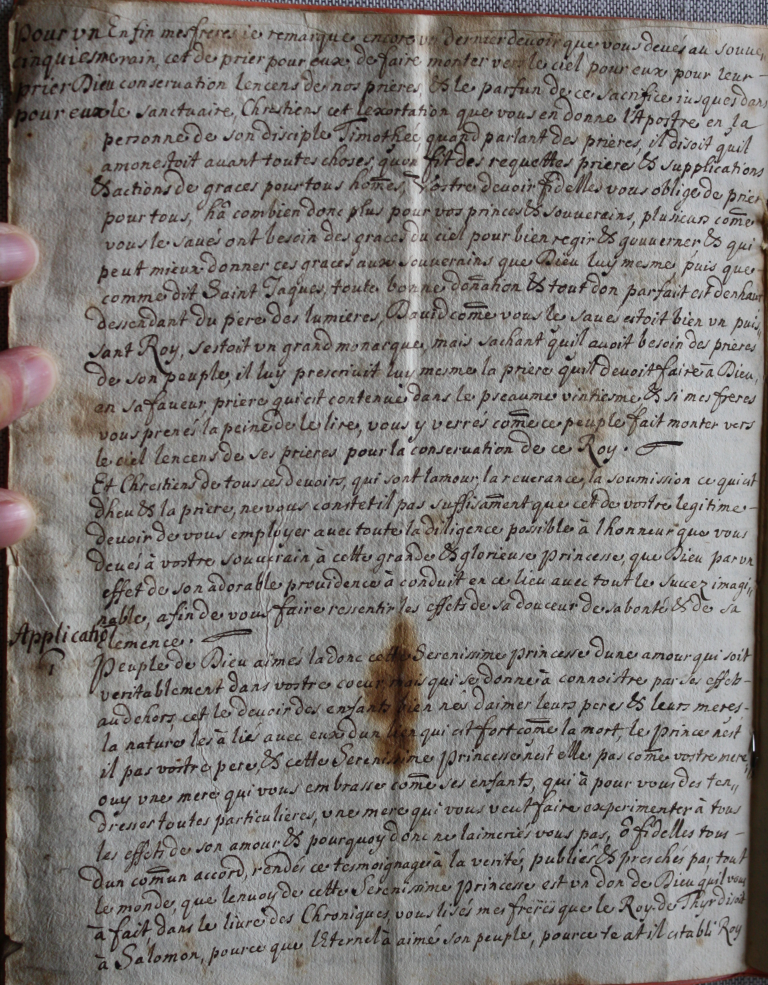 Pour un Enfin mes freres ie remarque encore un dernier devoir que vous devés au souve-
cinquiesme rain, cet de prier pour eux de faire monter vers le ciel pour eux pour leur
prier Dieu conservation lencens de nos prieres, & le parfun de ce sacrifice iusques dans
pour eux le sanctuaire, Chrestiens cet lexortation que vous en donne l'Apostre en la
personne de son disciple Timothee quand parlant des prieres, il disoit quil
amonestoit avant toutes choses, quon fit des requettes prieres & supplications
& actions de graces pour tous hom̄es, Vostre devoir fidelles vous oblige de prier
pour tous, hâ combien donc plus pour vos princes & souverains, plusieurs com̄e
vous le savés ont besoin des graces du ciel pour bien regir & gouverner & qui
peut mieux donner ces graces aux souverains que Dieu luy mesme, puis que
comme dit Saint Iaques, toute bonne donation & tout don parfait est denhaut
dessendant du pere des lumieres, David com̄e vous le saves estoit bien un puis„
sant Roy, sestoit un grand monarque, mais sachant quil avoit besoin des prieres
de son peuple, il luy prescrivit luy mesme la priere quil devoit faire à Dieu,
en sa faveur, priere qui est contenue dans le pseaume vintiesme & si mes freres
vous prenés la peine de le lire, vous y verrés com̄e ce peuple fait monter vers
le ciel lencens de ses prieres pour la conservation de ce Roy.
Et Chrestiens de tous ces devoirs, qui sont lamour, la reverance, la soumission ce qui est
dheu & la priere, ne vous constetil pas suffisam̄ent que cet de vostre legitime
devoir de vous employer avec toute la diligence possible à lhonneur que vous
deves à vostre souverain à cette grande & glorieuse princesse, que Dieu par un
effet de son adorable providence à conduit en ce lieu avec tout le sucez imagi„
nable, afin de vous faire ressentir les effets de sa douceur de sa bonté & de sa
Applicaõn clemence.
1 Peuple de Dieu aimés la donc cette Serenisime princesse dune amour qui soit
veritablement dans vostre coeur mais qui se donne à connoistre par ses effets
au dehors, cet le devoir des enfants bien nés daimer leurs pere & leurs meres
la nature les à liés avec eux dun lien qui est fort com̄e la mort, le prince nest
il pas vôstre pere, & cette Serenisime princesse nest elle pas com̄e vostre mere,
ouy une mere qui vous embrasse com̄e ses enfants, qui à pour vous des ten„
dresses toutes particulieres, une mere qui vous veut faire experimenter à tous
les effets de son amour & pourquoy donc ne laimeriés vous pas, ô fidelles tous
dun com̄un accord, rendés ce tesmoignage à la verité, publiés & preschés par tout
le monde, que lenvoy de cette Serenisime princesse est un don de Dieu quil vous
à fait dans le livre des Chroniques, vous lisés mes freres que le Roy de Thyr disoit
à Salomon, pource que lEternel à aimé son peuple, pource te at il establi Roy